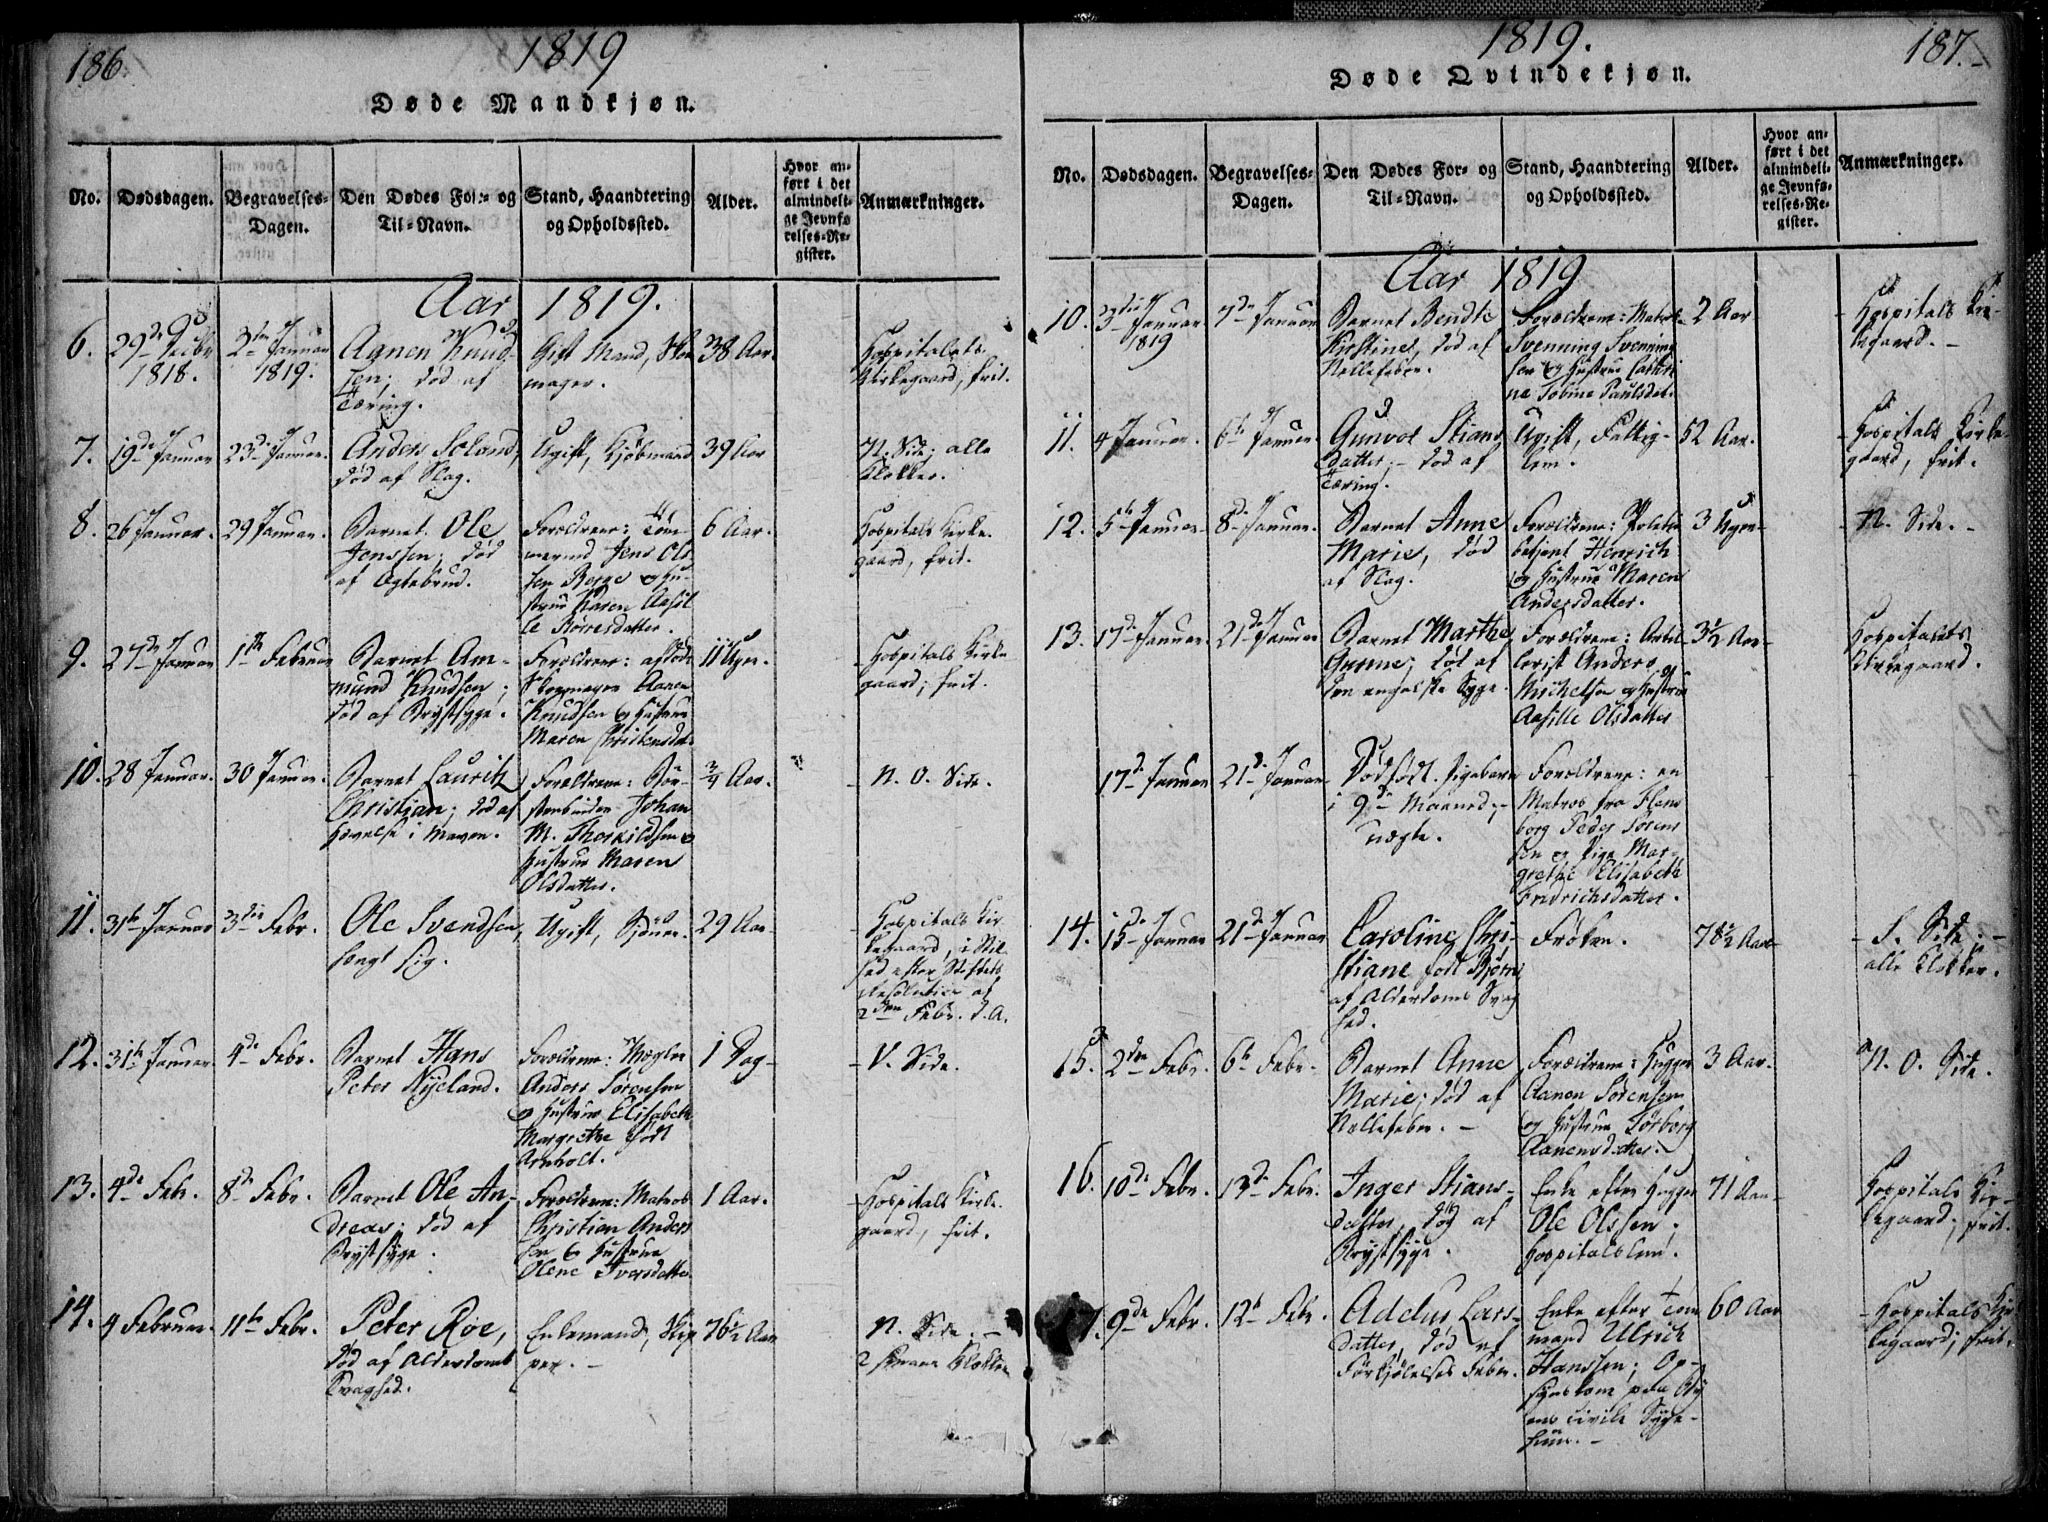 186.
1819
Døde Mandkjøn.
No. Dødsdagen. Begravelses-Dagen. Den Dødes For- og Til-Navn. Stand, Haandtering og Opholdssted. Alder. Hvor anført i det almindelige Jevnførelses-Register. Anmærkninger.
Aar 1819.
6. 29de Decbr 1818. 2den Januar 1819. Aanen Knudsen; død af Tæring. Gift Mand, Skomager. 38 Aar. Hospitalets Kirkegaard, frit.
7. 19de Januar 23de Januar. Anders Soland, død af Slag. Ugift, Kjøbmand 39 Aar N. Side; alle Klokker.
8. 26 Januar. 29 Januar. Barnet Ole Jenssen; død af Forældrene: Tømmermd Jens Olsen Berge og Hustrue Karen Aasille Børresdatter. 6 Aar. Hospitals Kirkegaard, frit.
9. 27de Januar 1ste Februar Barnet Amund Knudsen; død af Brystsyge. Forældrene: afdøde Skomager Aanen Knudsen og Hustrue Maren Christensdat. 11 Uger. Hospitals Kirkegaard; frit.
10. 28 Januar. 30 Januar. Barnet Lauritz Christian; død af Hævelse i Maven. Forældrene: Børstenbinder Johan M. Thorkildsen og Hustrue Maren Olsdatter. 3/4 Aar. N. O. Side.
11. 31te Januar 3die Febr. Ole Svendsen, hængt sig. Ugift, 29 Aar Hospitals Kirkegaard, i efter Stiftets Resolution af 2den Febr. d. A.
12. 31te Januar. 4de Febr. Barnet Hans Peter Nyeland. Forældrene: Mægler Anders Sørensen og Hustrue Elisabeth Margrethe født Arnholt. 1 Dag V. Side.
13. 4de Febr. 8de Febr. Barnet Ole Andreas; død af Brystsyge. Forældrene: Matros Christian Andersen og Hustrue Olene Iversdatter 1 Aar. Hospitals Kirkegaard, frit.
14. 4 Februar. 11te Febr. Peter Roe, død af Alderdoms Svaghed. Enkemand, Skipper. 76½ Aar N. Side. 2 Klokker
187.
1819.
Døde Qvindekjøn.
No. Dødsdagen. Begravelses-Dagen. Den Dødes For- og Til-Navn. Stand, Haandtering og Opholdssted. Alder. Hvor anført i det almindelige Jevnførelses-Register. Anmærkninger.
Aar 1819
10. 3die Januar 1819 7de Januar Barnet Bendte Kirstine, død af Nellefeber. Forældrene: Matros Svenning Svenningsen og Hustrue Cathrine Tobine Paulsdat. 2 Aar Hospitals Kirkegaard.
11. 4 Januar. 6te Januar. Gunvor Stiansdatter; død af Tæring. Ugift, Fattiglem. 52 Aar. Hospitals Kirkegaard, frit.
12. 5te Januar 8de Januar. Barnet Anne Marie, død af Slag. Forældrene: Politibetjent Henrich og Hustrue Maren Andersdatter. 3 Uger N. Side.
13. 17de Januar. 21de Januar Barnet Marthe Gurine; død af den engelske Syge. Forældrene: Anders Michelsen og Hustrue Aasille Olsdatter 3½ Aar Hospitalets Kirkegaard.
17de Januar 21de Januar Dødfødt Pigebarn i 9de Maaned; uægte. Forældrene: en Matros fra Flensborg Peder Sørensen og Pige Margrethe Elisabeth Fridrichsdatter.
14. 15de Januar 21de Januar Caroline Christiane født Bjørn af Alderdoms Svaghed. Frøken. 78½ Aar S. Side. alle Klokker.
15. 2den Febr. 6te Febr. Barnet Anne Marie; død af Nellefeber. Forældrene: Hugger Aanon Sørensen og Hustrue Torborg Aanensdatter. 3 Aar. N. O. Side.
16. 10de Febr. 13de Febr. Inger Stiansdatter, død af Brystsyge. Enke efter Hugger Ole Olssen; Hospitalslem. 71 Aar Hospitals Kirkegaard; frit.
17. 9de Febr. 12te Febr. Adelus Larsdatter, død af Forkjølelses Feber. Enke efter Tømmermand Ulrich Hanssen; Opsynskone paa Byens civile Sygehuus. 60 Aar Hospitals Kirkegaard; frit.